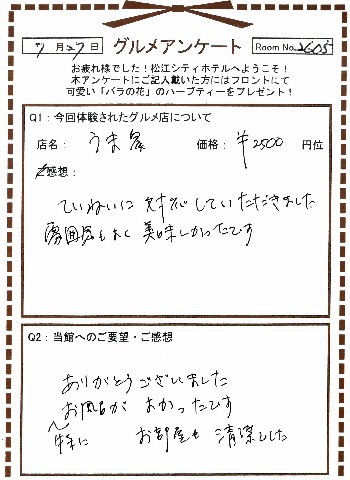 7月27日 グルメアンケート Room No. 2605
お疲れ様でした！松江シティホテルへようこそ！
本アンケートにご記入戴いた方にはフロントにて
可愛い「バラの花」のハーブティーをプレゼント！
Q1：今回体験されたグルメ店について
店名： うま家 価格： ￥2500 円位
ご感想：
ていねいに対応していただきました
雰囲気もよく美味しかったです
Q2：当館へのご要望・ご感想
ありがとうございました
お風呂がよかったです
特に お部屋も清潔でした